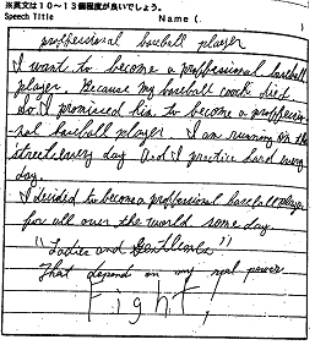 ※英文は10~13個程度が良いでしょう。
Speech Title Name (. )
proffessional baseball player
I want to become a proffessional baseball
player. Because my baseball coach died
So I promised him to become a proffessio-
nal baseball player. I am running on the
street every day And I practice hard every
day.
I decided to become a proffessional baseball player
for all over the world some day
"Ladies and Gentlemen"
That depend on my real power
Fight!